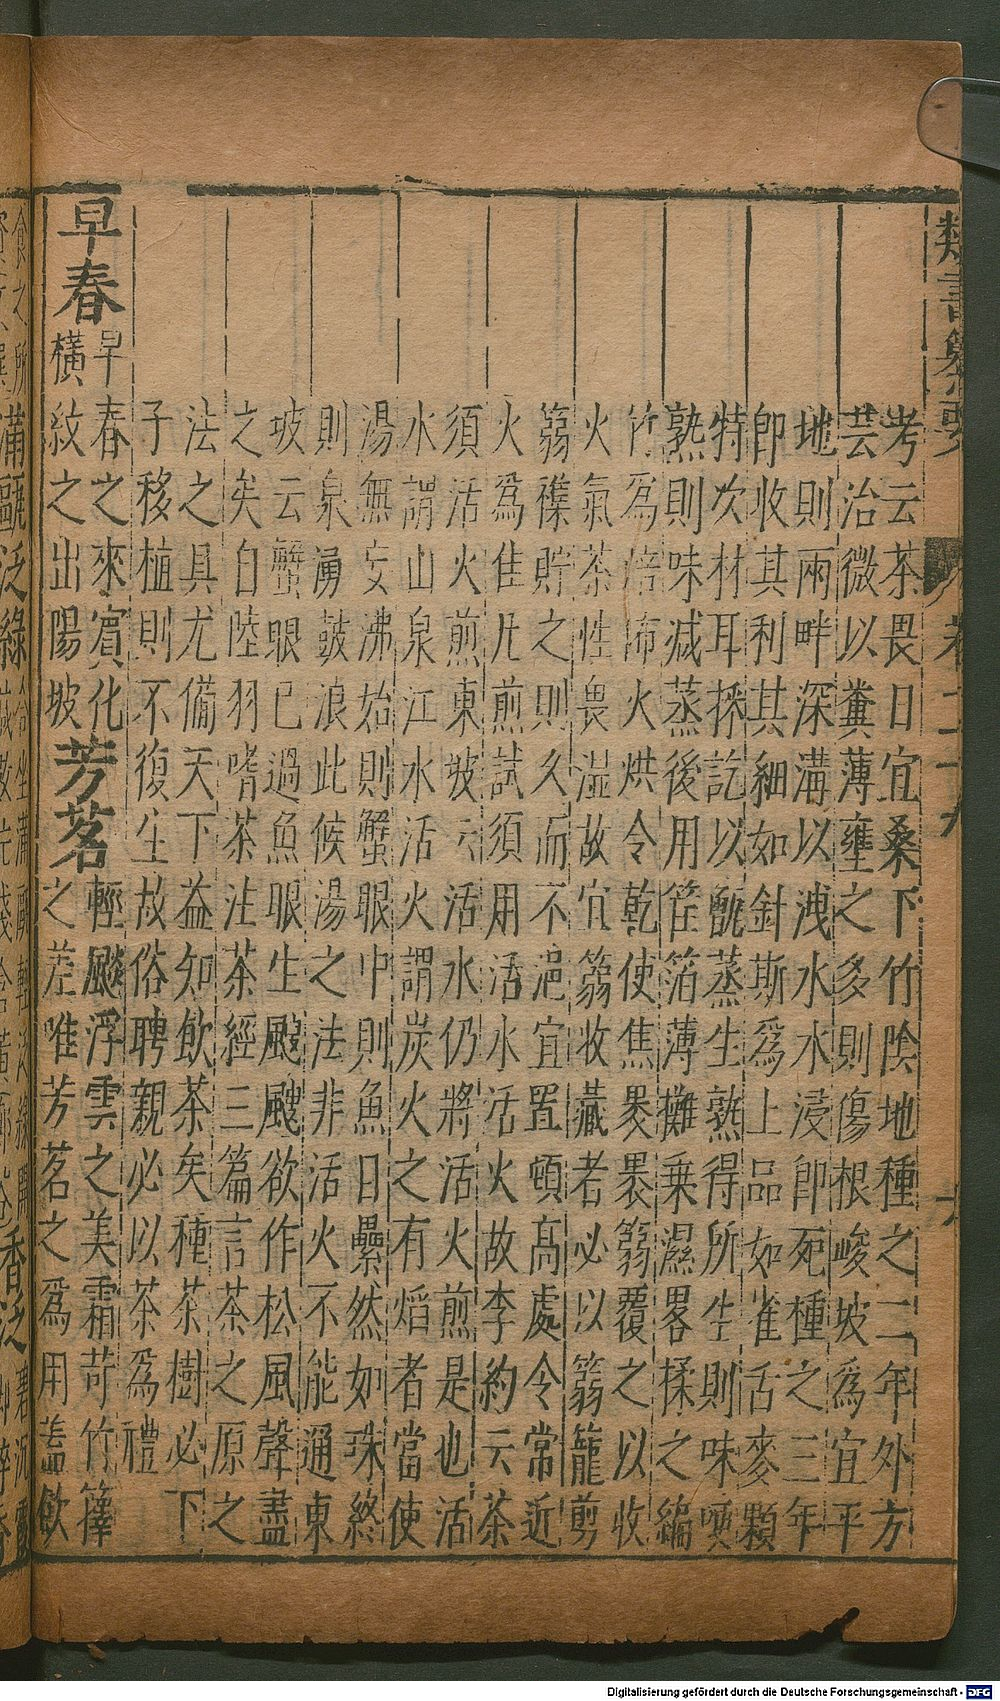 類書纂要
卷二十九
考云茶畏日宜桑下竹陰地種之二年外方
芸治微以糞薄壅之多則傷根峻坡爲宜平
地則兩畔深溝以洩水水浸即死種之三年
即收其利其細如針斯爲上品如雀舌麥顆
特次材耳採訖以甑蒸生熟得所生則味嗅
熟則味减蒸後用筐箔薄攤乗濕畧揉之編
竹爲焙怖火烘令乾使焦褁褁篛覆之以收
火氣茶性畏湿故宜篛收藏者必以篛籠剪
篛襍貯之則久而不浥宜置頓高處令常近
火爲隹凡煎試須用活水活火故李約云茶
須活火煎東坡云活水仍將活火煎是也活
水謂山泉江水活火謂炭火之有熖者當使
湯無妄沸始則蟹眼中則魚日纍然如珠終
則泉湧鼓浪此候湯之法非活火不能通東
坡云蟹眼已過魚眼生颼颼欲作松風聲盡
之矣自陸羽嗜茶注茶經三篇言茶之原之
法之具尤備天下益知飲茶矣種茶樹必下
子移植則不復生故俗聘親必以茶爲禮
早春
早春之來賔化
橫紋之出陽坡
芳茗
輕飈浮雲之美霜苛竹籜
之差唯芳茗之爲用盖飲
Digitalisierung gefördert durch die Deutsche Forschungsgemeinschaft - DFG